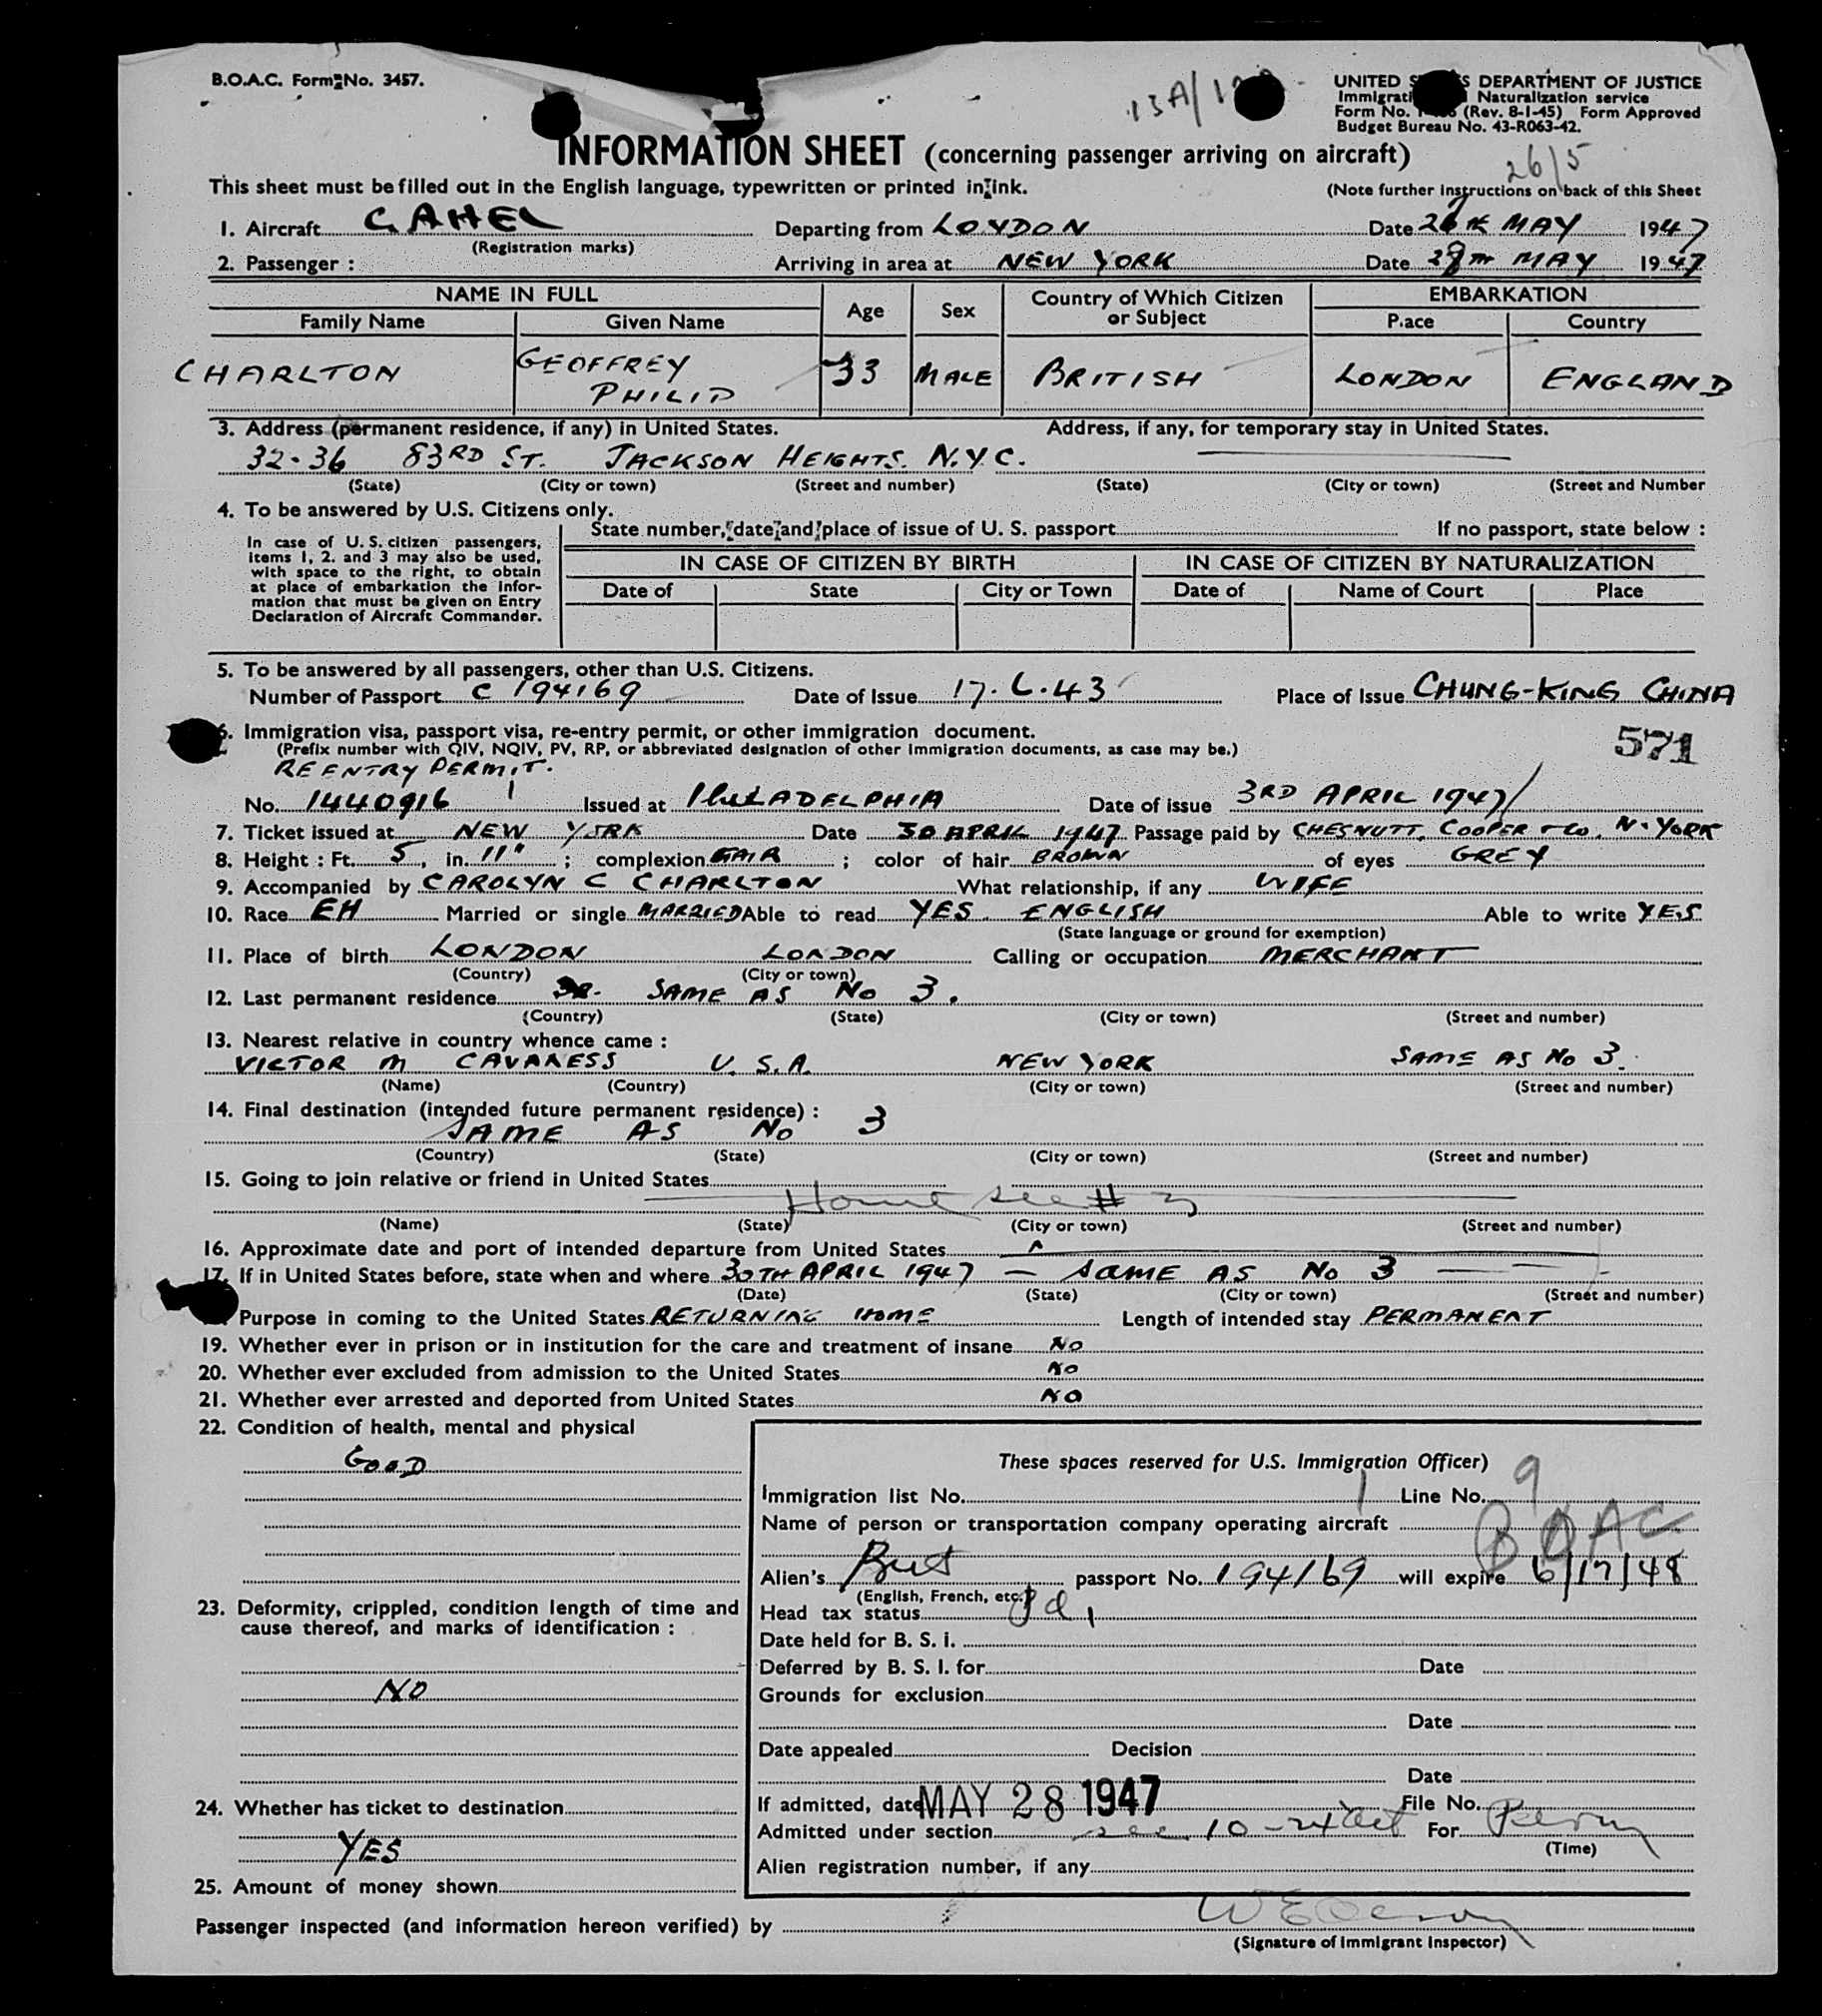 B.O.A.C. Form No. 3457.
13A/
UNITED DEPARTMENT OF JUSTICE
Naturalization service
Form No. (Rev. 8-1-45) Form Approved
Budget Bureau No. 43-R063-42.
INFORMATION SHEET (concerning passenger arriving on aircraft)
26/5
This sheet must be filled out in the English language, typewritten or printed in ink.
(Note further instructions on back of this Sheet
1. Aircraft GAHEL Departing from LONDON Date 26TH MAY 1947
(Registration marks)
2. Passenger : Arriving in area at NEW YORK Date MAY 1947
NAME IN FULL Age Sex Country of Which Citizen or Subject EMBARKATION
Family Name Given Name Place Country
CHARLTON GEOFFREY PHILIP 33 MALE BRITISH LONDON ENGLAND
3. Address (permanent residence, if any) in United States. Address, if any, for temporary stay in United States.
32-36 83RD ST. JACKSON HEIGHTS. N.Y.C.
(State) (City or town) (Street and number) (State) (City or town) (Street and Number
4. To be answered by U.S. Citizens only.
State number, date and place of issue of U. S. passport If no passport, state below :
In case of U. S. citizen passengers,
items 1, 2. and 3 may also be used,
with space to the right, to obtain
at place of embarkation the infor-
mation that must be given on Entry
Declaration of Aircraft Commander.
IN CASE OF CITIZEN BY BIRTH IN CASE OF CITIZEN BY NATURALIZATION
Date of State City or Town Date of Name of Court Place
5. To be answered by all passengers, other than U.S. Citizens.
Number of Passport C 194169 Date of Issue 17.6.43 Place of Issue CHUNG-KING CHINA
6. Immigration visa, passport visa, re-entry permit, or other immigration document.
(Prefix number with QIV, NQIV, PV, RP, or abbreviated designation of other immigration documents, as case may be.)
571
REENTRY PERMIT.
No. 1440916 Issued at PHILADELPHIA Date of issue 3RD APRIL 1947
7. Ticket issued at NEW YORK Date 30 APRIL 1947 Passage paid by CHESNUTT, COOPER & Co. N. YORK
8. Height : Ft. 5, in. 11" ; complexion FAIR ; color of hair BROWN of eyes GREY
9. Accompanied by CAROLYN C CHARLTON What relationship, if any WIFE
10. Race EH Married or single MARRIED Able to read YES. ENGLISH Able to write YES
(State language or ground for exemption)
11. Place of birth LONDON LONDON Calling or occupation MERCHANT
(Country) (City or town)
12. Last permanent residence SAME AS No 3.
(Country) (State) (City or town) (Street and number)
13. Nearest relative in country whence came :
VICTOR M CAVANESS U.S.A. NEW YORK SAME AS No 3.
(Name) (Country) (City or town) (Street and number)
14. Final destination (intended future permanent residence) :
SAME AS No 3
(Country) (State) (City or town) (Street and number)
15. Going to join relative or friend in United States
Home see # 3
(Name) (State) (City or town) (Street and number)
16. Approximate date and port of intended departure from United States
17. If in United States before, state when and where 30TH APRIL 1947 — SAME AS No 3
(Date) (State) (City or town) (Street and number)
Purpose in coming to the United States RETURNING HOME Length of intended stay PERMANENT
19. Whether ever in prison or in institution for the care and treatment of insane No
20. Whether ever excluded from admission to the United States No
21. Whether ever arrested and deported from United States NO
22. Condition of health, mental and physical
GOOD
These spaces reserved for U.S. Immigration Officer)
Immigration list No. 1 Line No. 9
Name of person or transportation company operating aircraft BOAC
Alien's Brit passport No. 194169 will expire 6/17/48
(English, French, etc.)
23. Deformity, crippled, condition length of time and
cause thereof, and marks of identification :
NO
Head tax status
Date held for B. S. i.
Deferred by B. S. I. for Date
Grounds for exclusion
Date
Date appealed Decision
Date
24. Whether has ticket to destination
YES
If admitted, date MAY 28 1947 File No.
Admitted under section sec. 10 For
(Time)
Alien registration number, if any
25. Amount of money shown
Passenger inspected (and information hereon verified) by
(Signature of Immigrant Inspector)